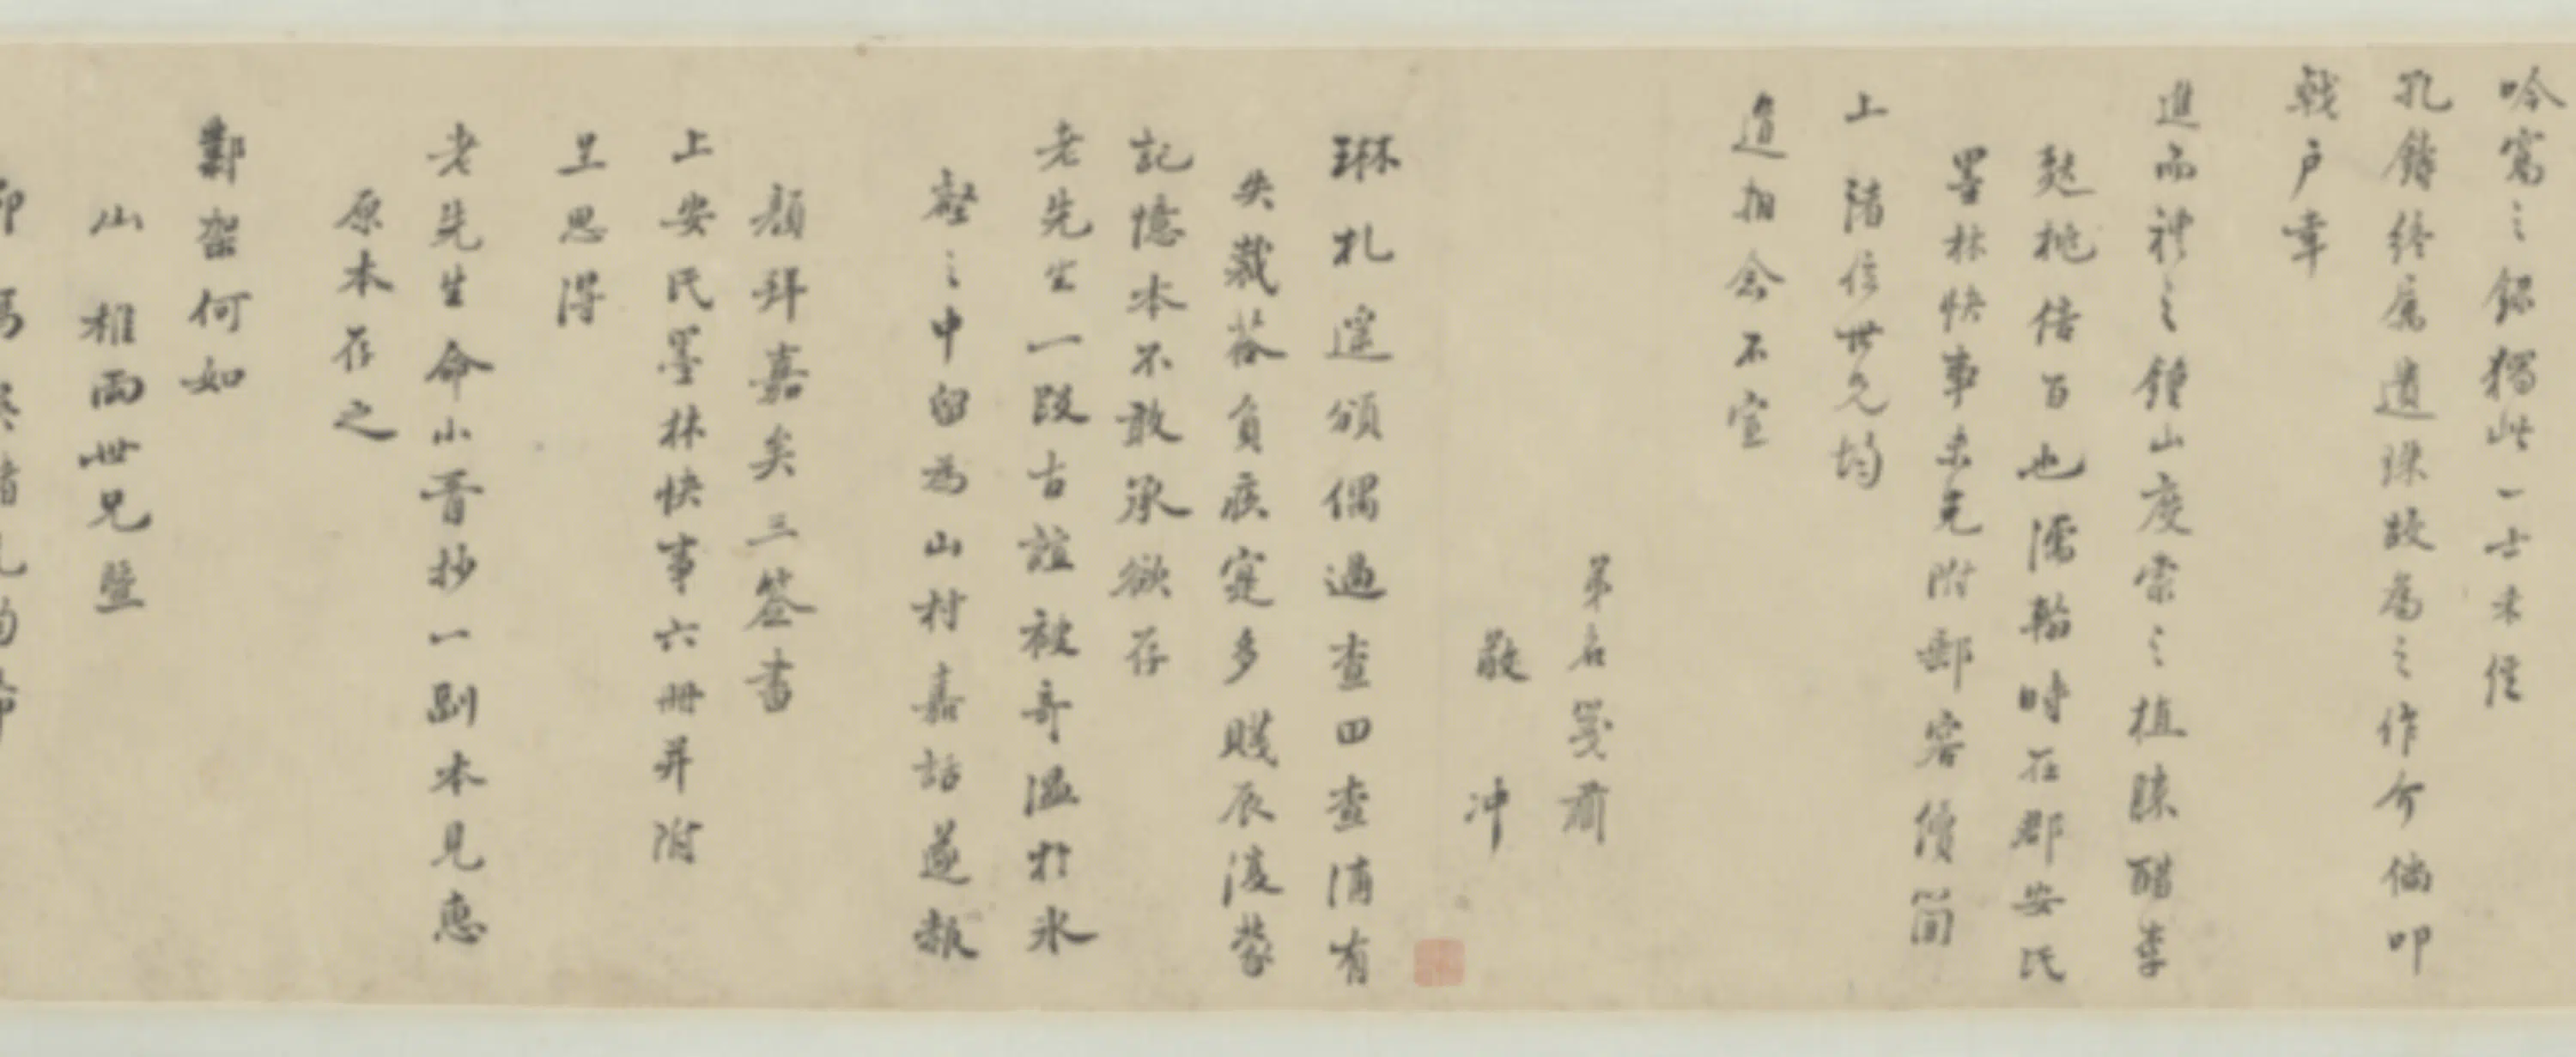 吟窩之錄獨此一士未侄
孔鑄終屬遺珠故為之作介倘叩
戟戶幸
進而禮之鐘山度索之植賒醋李
甦桃倍百也濡翰時在郡安氏
墨林快事未克附郵容續簡
上 階信世兄均
道相念不宣
弟名箋肅
敬 沖
琳札遙頒偶過查四查浦有
失裁答負疚寔多賤辰淩蒙
記憶本不敢承欲存
老先生一段古誼被奇溫於氷
壑之中留為山村嘉話遂報
顏拜嘉矣三答書
上安氏墨林快事六冊并附
呈思得
老先生命小胥抄一副本見惠
原本存之
鄴架何如
山 椎兩世兄曁